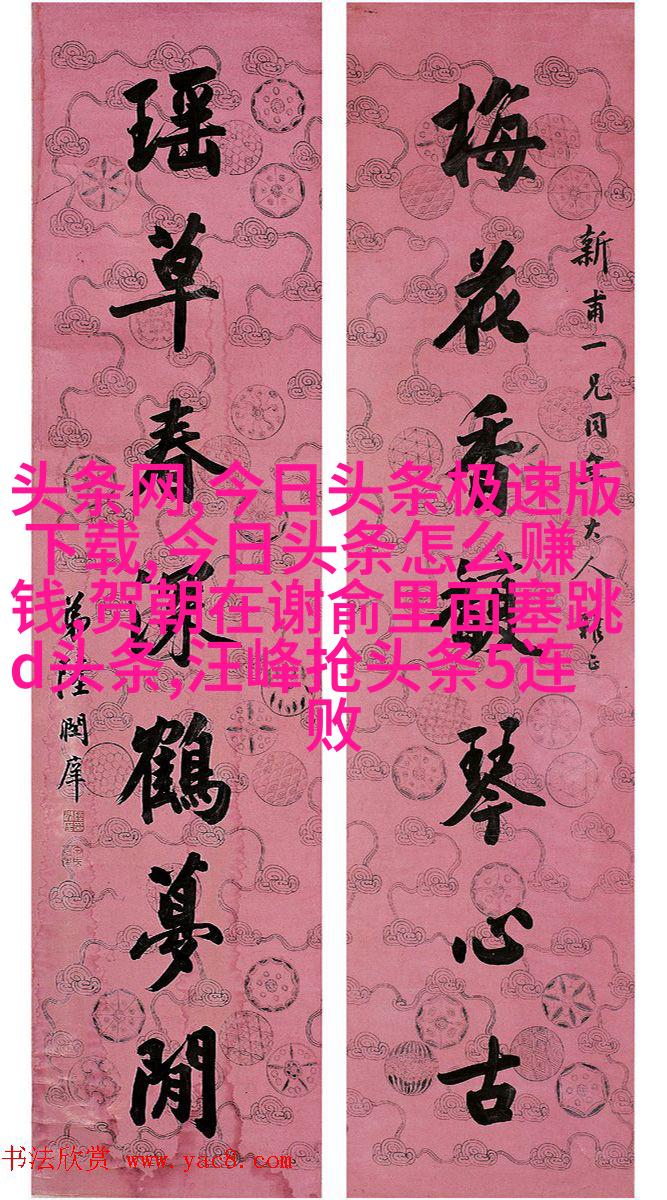 梅花香琴心古
新甫一兄同年大人雅正
瑶草春深鶴夢閒
弟陸潤庠
头条网,今日头条极速版
下载,今日头条怎么赚
钱,贺朝在谢俞里面塞跳
d头条,汪峰抢头条5连
败
书法欣赏 www.yac8.com